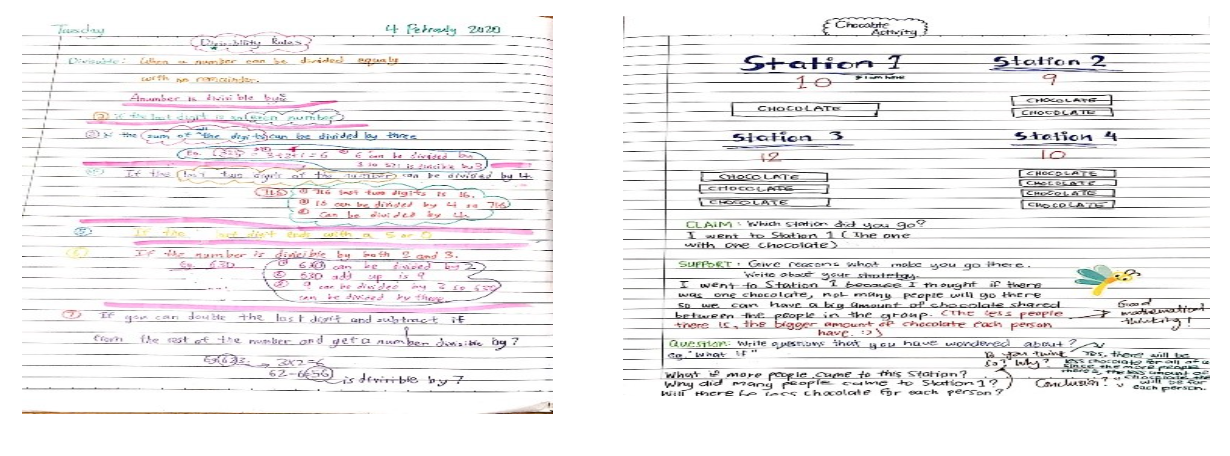 Tuesday
4 February 2020
Divisibility Rules
Divisible: When a number can be divided equally
with no remainder.
A number is divisible by:
② if the last digit is an even number
③ If the sum of the digits can be divided by three
Eg. 321 = 3+2+1=6 6 can be divided by
3 so 321 is divisible by 3
If the last two digits of the number can be divided by 4
716 ① 716 last two digits is 16.
② 16 can be divided by 4 so 716
③ can be divided by 4.
⑤ If the last digit ends with a 5 or 0
⑥ If the number is divisible by both 2 and 3.
Eg. 630 ① 630 can be divided by 2
② 630 add up is 9
③ 9 can be divided by 3 so 630
can be divided by three
⑦ If you can double the last digit and subtract it
from the rest of the number and get a number divisible by 7
3×2=6
62-6=56 is divisible by 7
Chocolate
Activity
Station 1
10
CHOCOLATE
Station 2
9
CHOCOLATE
CHOCOLATE
Station 3
12
CHOCOLATE
CHOCOLATE
CHOCOLATE
Station 4
10
CHOCOLATE
CHOCOLATE
CHOCOLATE
CHOCOLATE
CLAIM: Which station did you go?
I went to Station 1 (The one
with one chocolate)
SUPPORT: Give reasons what make you go there.
Write about your strategy.
I went to Station 1 because I thought if there
was one chocolate, not many people will go there
so we can have a big amount of chocolate shared
between the people in the group. (The less people
there is, the bigger amount of chocolate each person
have. :))
Good
mathematical
thinking!
Question: Write questions that you have wondered about?
eg. "What if"
What if more people came to this Station?
Why did many people came to Station 1?
Will there be less chocolate for each person?
Do you think
so? Why?
Yes, there will be
less chocolate for all of us
since the more people
there is, the less amount of
chocolate there
will be for
each person.
Conclusion?